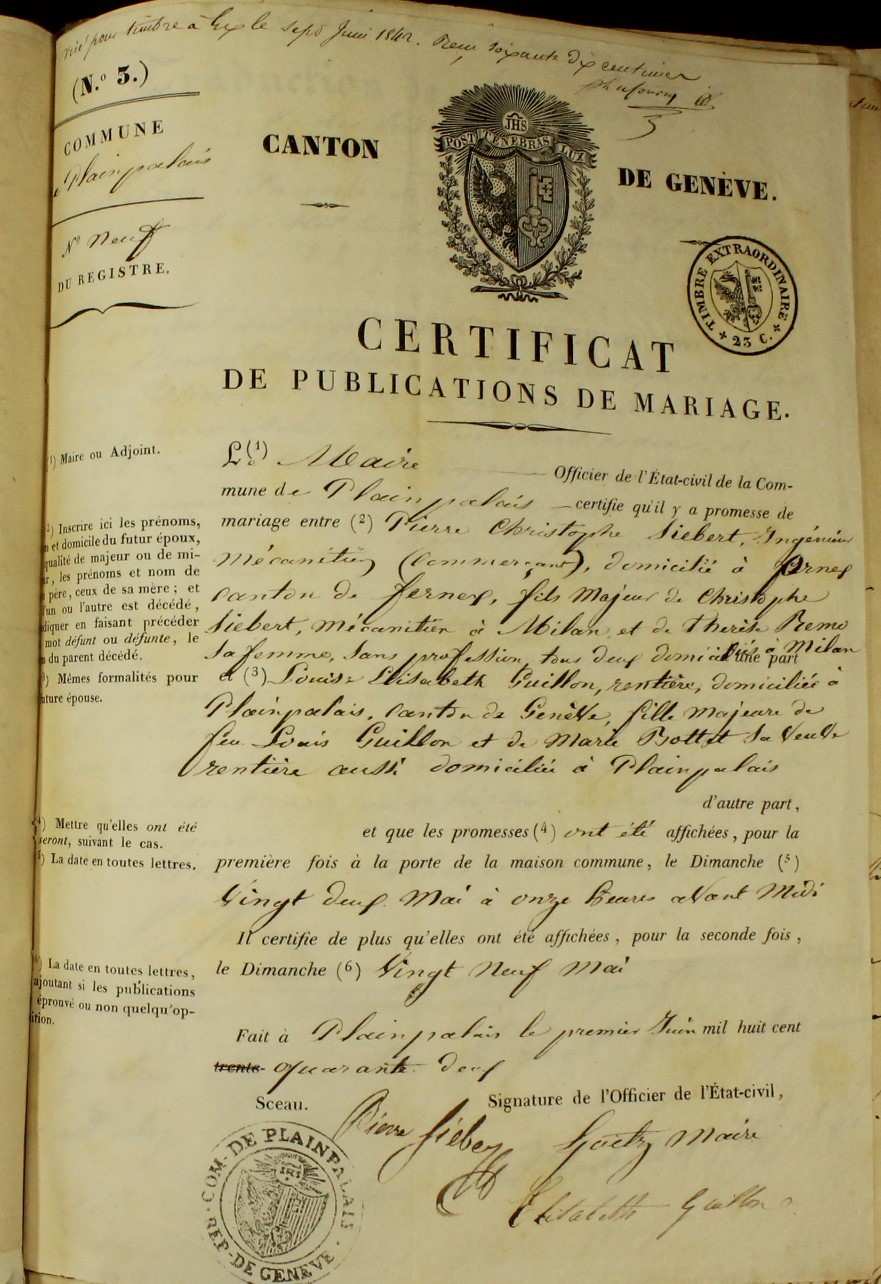 visé pour timbre à Gex le sept Juin 1842. Reçu soixante dix centimes
(N.º 3.)
COMMUNE
Plainpalais
Nº neuf
DU REGISTRE.
CANTON
DE GENÈVE.
JHS
POST TENEBRAS LUX
TIMBRE EXTRAORDINAIRE
23 C.
CERTIFICAT
DE PUBLICATIONS DE MARIAGE.
(1) Maire ou Adjoint.
L (1) Maire Officier de l'État-civil de la Com-
mune de Plainpalais certifie qu'il y a promesse de
mariage entre (2) Pierre Christophe Siebert, Ingénieur
Mécanitien (Commerçant), domicilié à fernex
Canton de fernex, fils Majeur de Christophe
Siebert, Mécanitien à Milan et de Therèse Remo
sa femme, sans profession, tous deux domiciliés à Milan
d'une part
et (3) Louise Elisabeth Guillon, rentière, domiciliée à
Plainpalais, Canton de Genève, fille Majeure de
feu Louis Guillon et de Marie Bottet sa Veuve
rentière aussi domiciliée à Plainpalais
d'autre part,
2) Inscrire ici les prénoms,
et domicile du futur époux,
qualité de majeur ou de mi-
, les prénoms et nom de
père, ceux de sa mère ; et
l'un ou l'autre est décédé,
diquer en faisant précéder
mot défunt ou défunte, le
du parent décédé.
) Mêmes formalités pour
uture épouse.
et que les promesses (4) ont été affichées, pour la
première fois à la porte de la maison commune, le Dimanche (5)
Vingt deux Mai à onze heures avant Midi
4) Mettre qu'elles ont été
seront, suivant le cas.
) La date en toutes lettres.
Il certifie de plus qu'elles ont été affichées, pour la seconde fois,
le Dimanche (6) Vingt Neuf Mai
) La date en toutes lettres,
ajoutant si les publications
éprouvé ou non quelqu'op-
ition.
Fait à Plainpalais le premier Juin mil huit cent
trente quarante deux
Sceau.
Signature de l'Officier de l'État-civil,
Pierre Siebert
Goetz Maire
Elisabeth Guillon
COM. DE PLAINPALAIS
REP. DE GENEVE